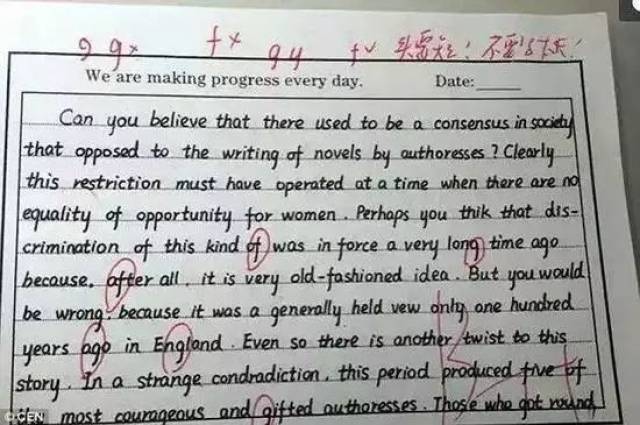 g g× f× g y f✓ 头要短！不要
We are making progress every day. Date:
Can you believe that there used to be a consensus in society
that opposed to the writing of novels by authoresses? Clearly
this restriction must have operated at a time when there are no
equality of opportunity for women. Perhaps you thik that dis-
crimination of this kind of was in force a very long time ago
because, after all, it is very old-fashioned idea. But you would
be wrong, because it was a generally held vew only one hundred
years ago in England. Even so there is another twist to this
story. In a strange condradiction, this period produced five of
the most courageous and gifted authoresses. Those who got round
© CEN